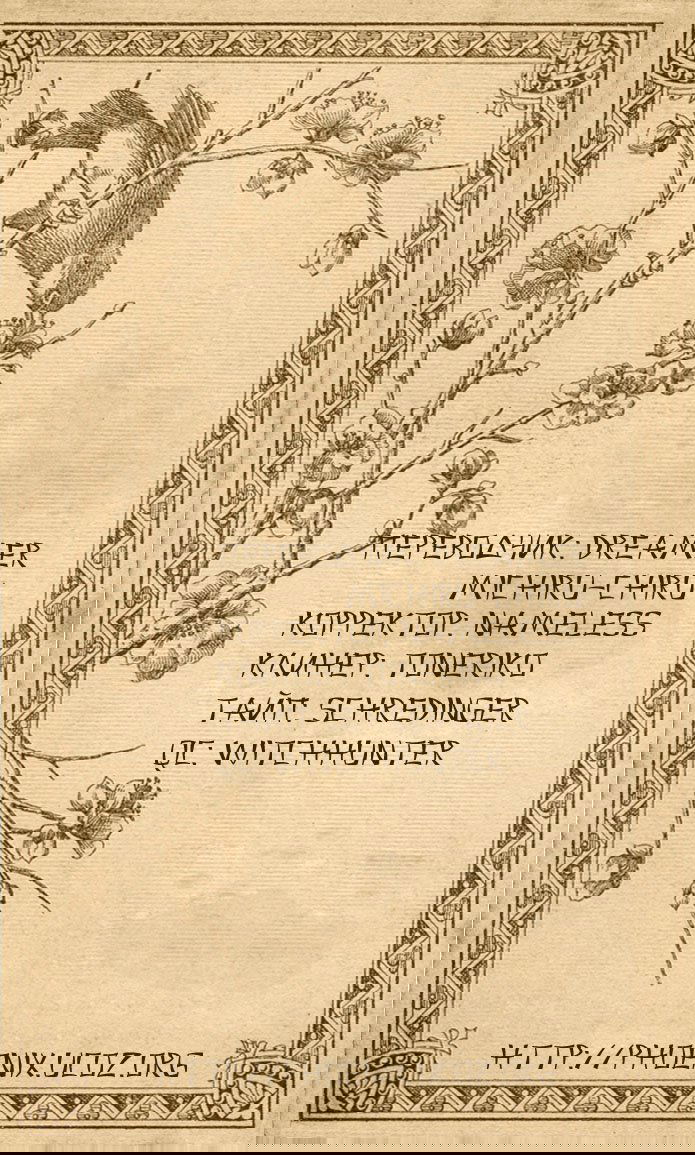 ПЕРЕВОДЧИК: DREAMER
MICHIRU-CHIRU
КОРРЕКТОР: NAMELESS
КЛИНЕР: TONERIKO
ТАЙП: SCHREDINGER
QC WITCHHUNTER
HTTP://PHOENIX.UCOZ.ORG